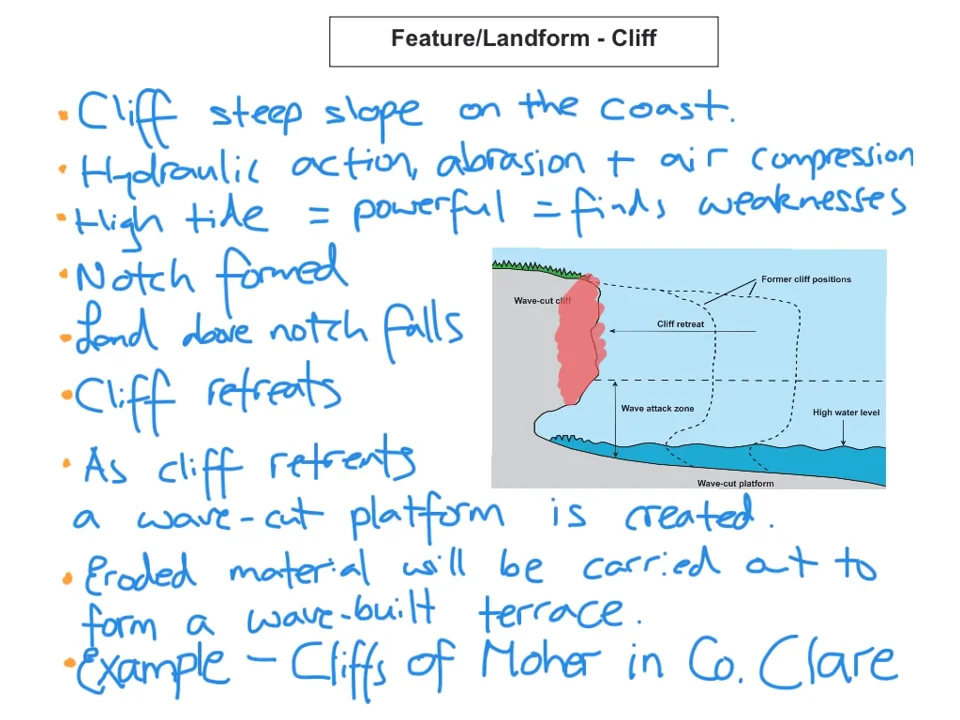 Feature/Landform - Cliff
• Cliff steep slope on the coast.
• Hydraulic action, abrasion + air compression
• High tide = powerful = finds weaknesses
• Notch formed
• Land above notch falls
• Cliff retreats
• As cliff retreats
a wave-cut platform is created.
• Eroded material will be carried out to
form a wave-built terrace.
• Example - Cliffs of Moher in Co. Clare
Former cliff positions
Wave-cut cliff
Cliff retreat
Wave attack zone
High water level
Wave-cut platform